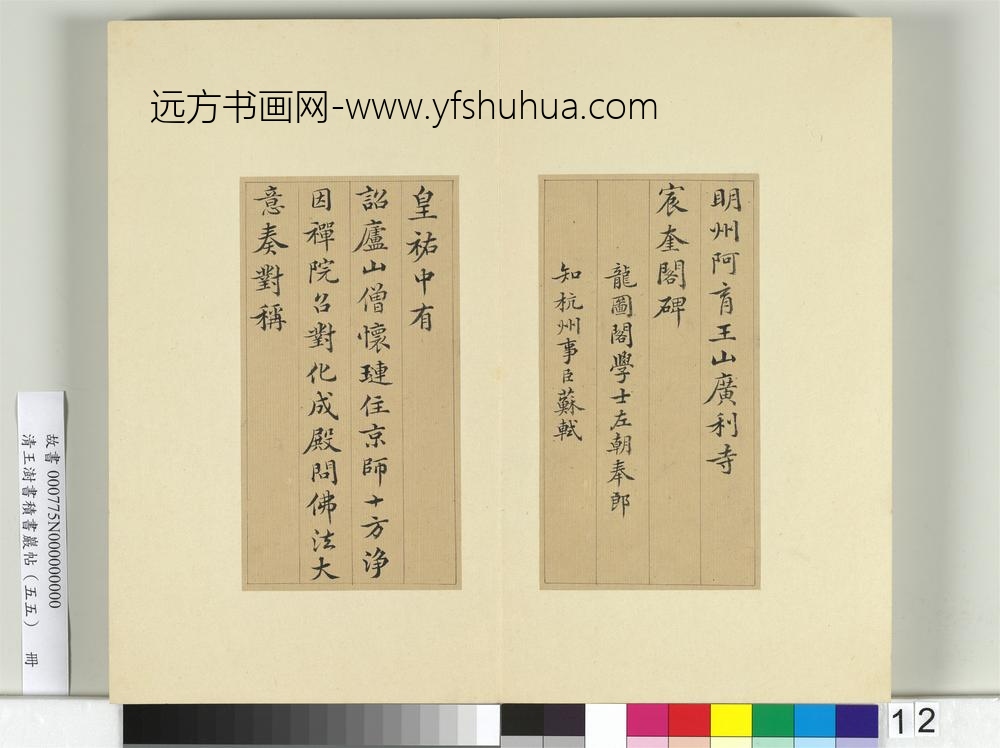 远方书画网-www.yfshuhua.com
明州阿育王山廣利寺
宸奎閣碑
龍圖閣學士左朝奉郎
知杭州事臣蘇軾
皇祐中有
詔廬山僧懷璉住京師十方淨
因禪院召對化成殿問佛法大
意奏對稱
故書 000775N000000000
清王澍書積書巖帖（五五） 冊
12